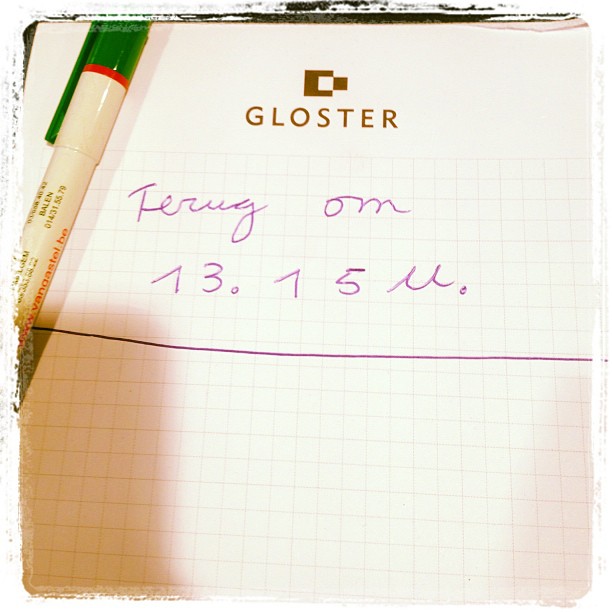 GLOSTER
Terug om
13.15 u.
BALEN
014/31.55.79
www.vangastel.be